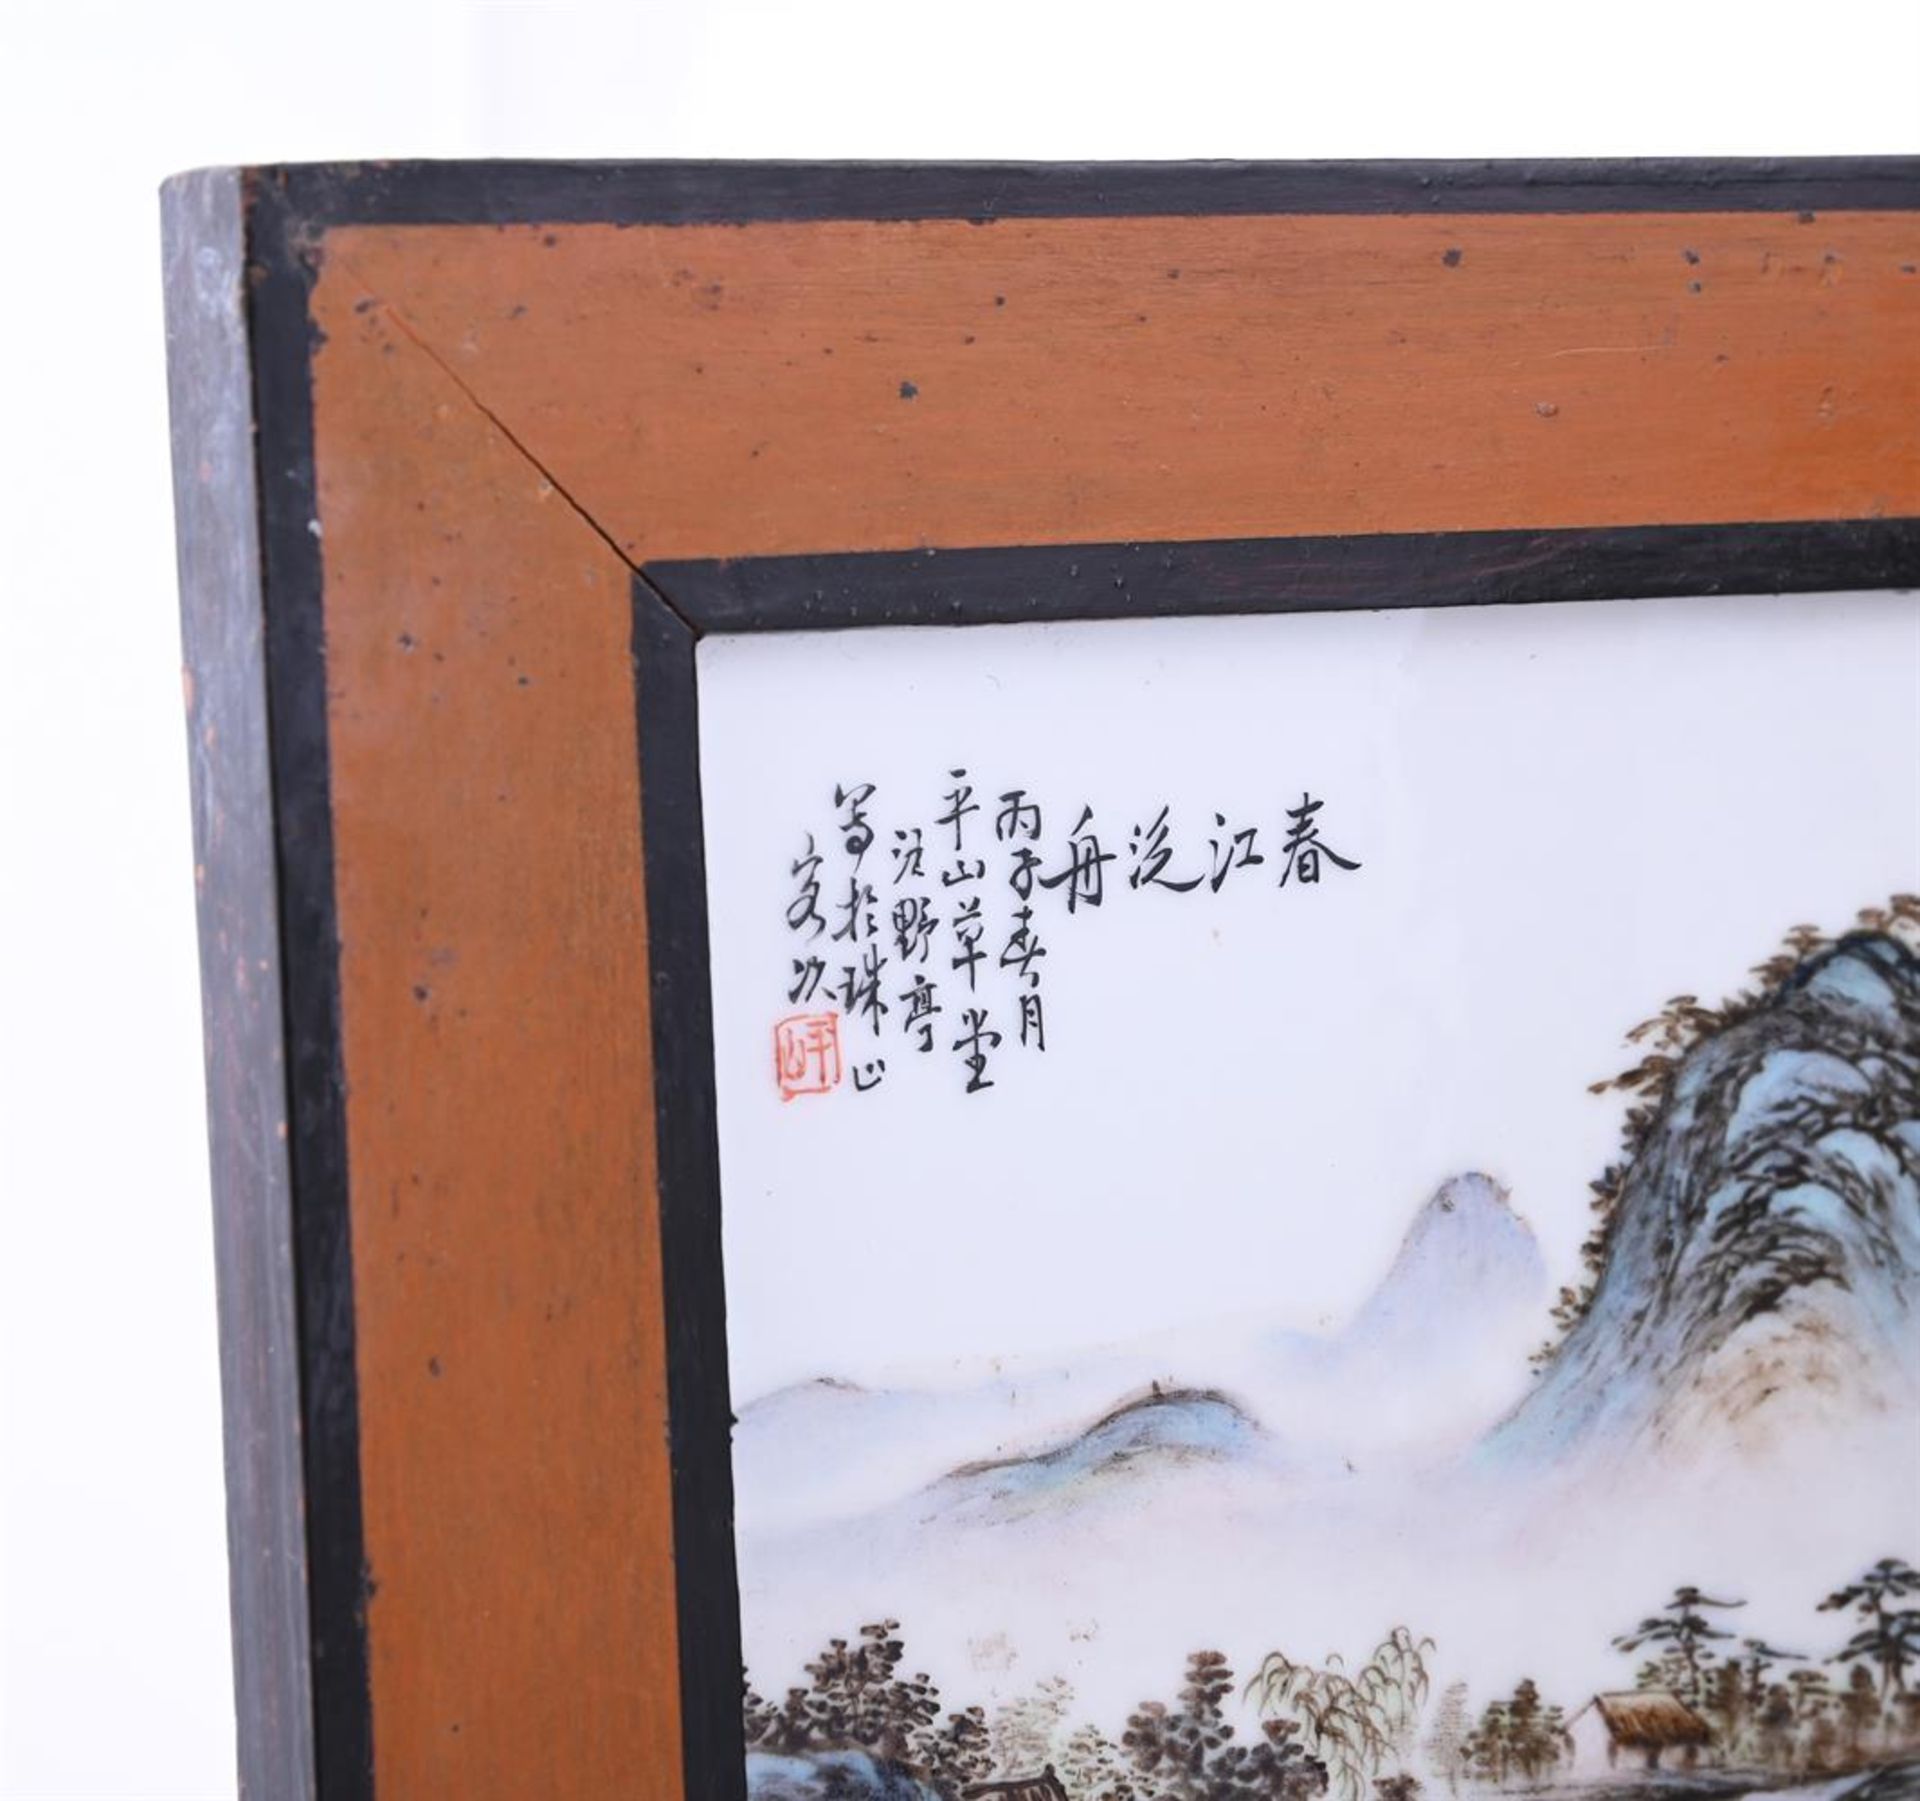 春江泛舟
丙子春月
平山草堂
汪野亭
写於珠山
客次
平山